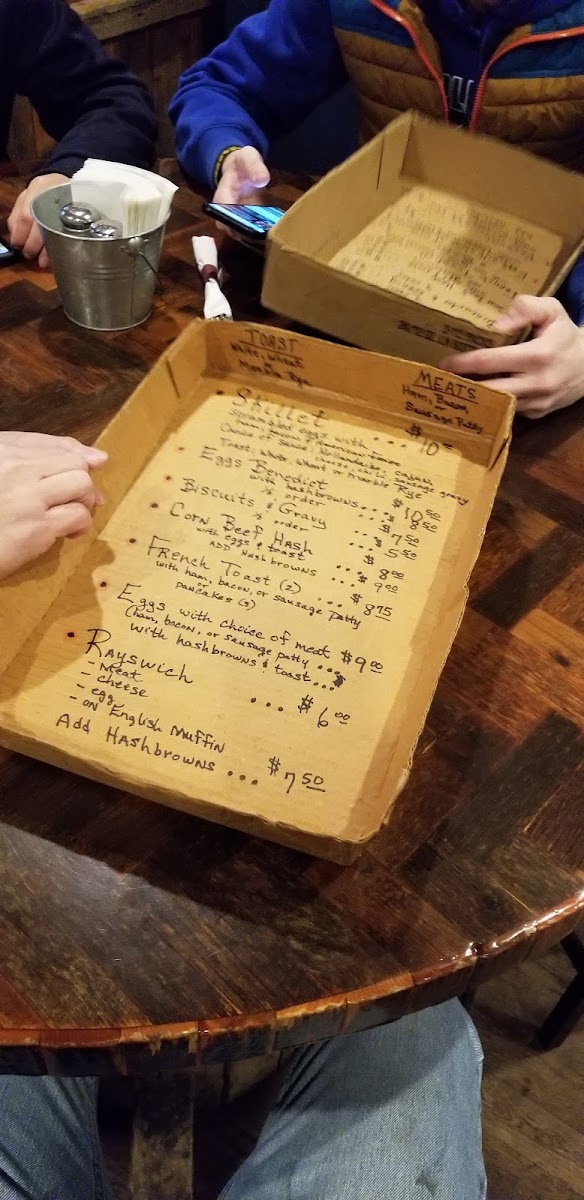 TOAST
White, Wheat
Marble Rye
MEATS
Ham, Bacon,
or
Sausage Patty
Skillet ... $10
Scrambled eggs with
ham, bacon & American fries
Choice of sauce: Hollandaise, cajun,
cheese, chili, sausage gravy
Toast, White, Wheat or Marble Rye
Eggs Benedict $10 50
with hashbrowns ... $8 50
½ order
Biscuits & Gravy ... $7 50
½ order ... 5 50
Corn Beef Hash $
with eggs & toast ... 8 00
ADD Hashbrowns ... $9 00
French Toast (2) ... $8 75
with ham, bacon, or sausage patty
or
pancakes (3)
Eggs with choice of meat $9 00
(ham, bacon, or sausage patty ...
with hashbrowns & toast ...
Rayswich ... $6 00
- Meat
- cheese
- egg
- on English Muffin
Add Hashbrowns ... $7 50